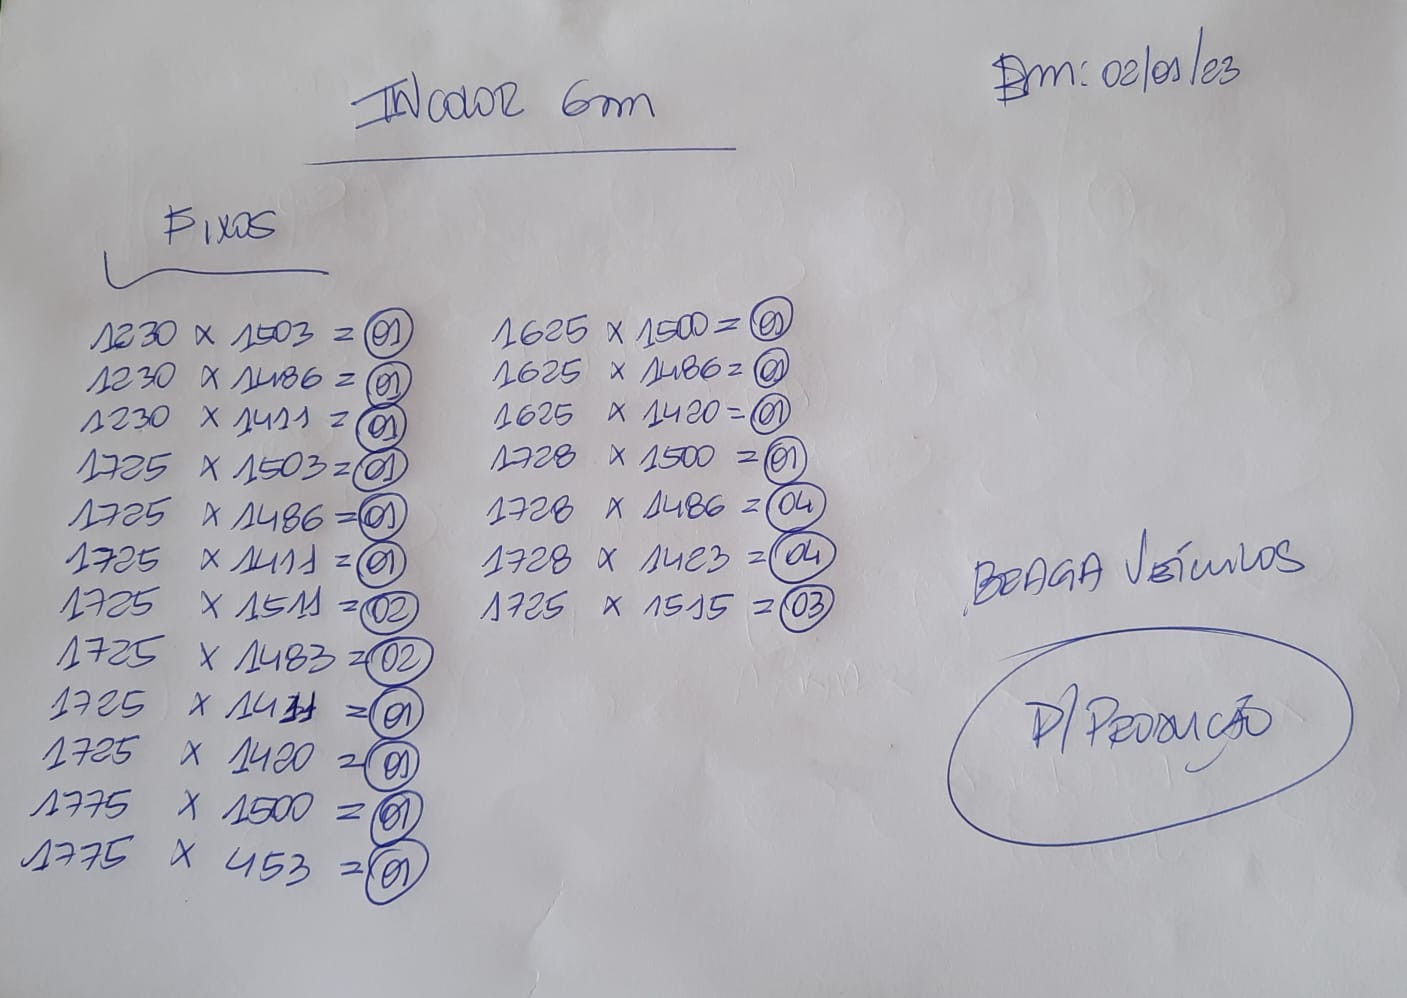 INCOLOR 6mm
Em: 02/01/23
FIXOS
1230 x 1503 = 01
1230 x 1486 = 01
1230 x 1411 = 01
1725 x 1503 = 01
1725 x 1486 = 01
1725 x 1411 = 01
1725 x 1511 = 02
1725 x 1483 = 02
1725 x 1411 = 01
1725 x 1420 = 01
1775 x 1500 = 01
1775 x 453 = 01
1625 x 1500 = 01
1625 x 1486 = 01
1625 x 1420 = 01
1728 x 1500 = 01
1728 x 1486 = 04
1728 x 1423 = 04
1725 x 1515 = 03
BRAGA VEÍCULOS
P/ PRODUÇÃO